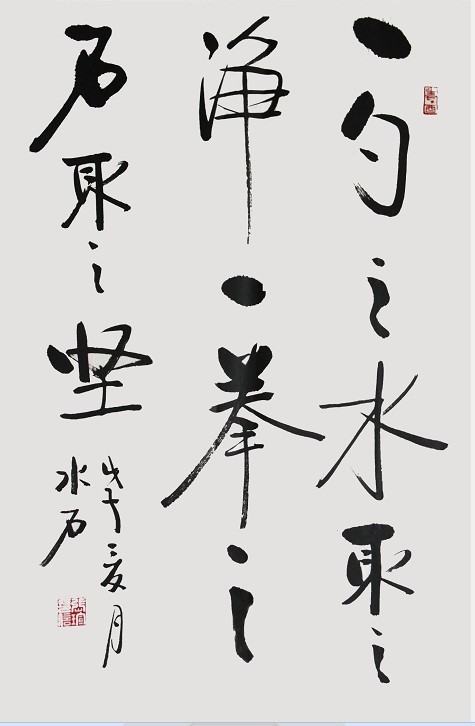 一勺之水取之
净一拳之
石取之坚
戊子月
水石